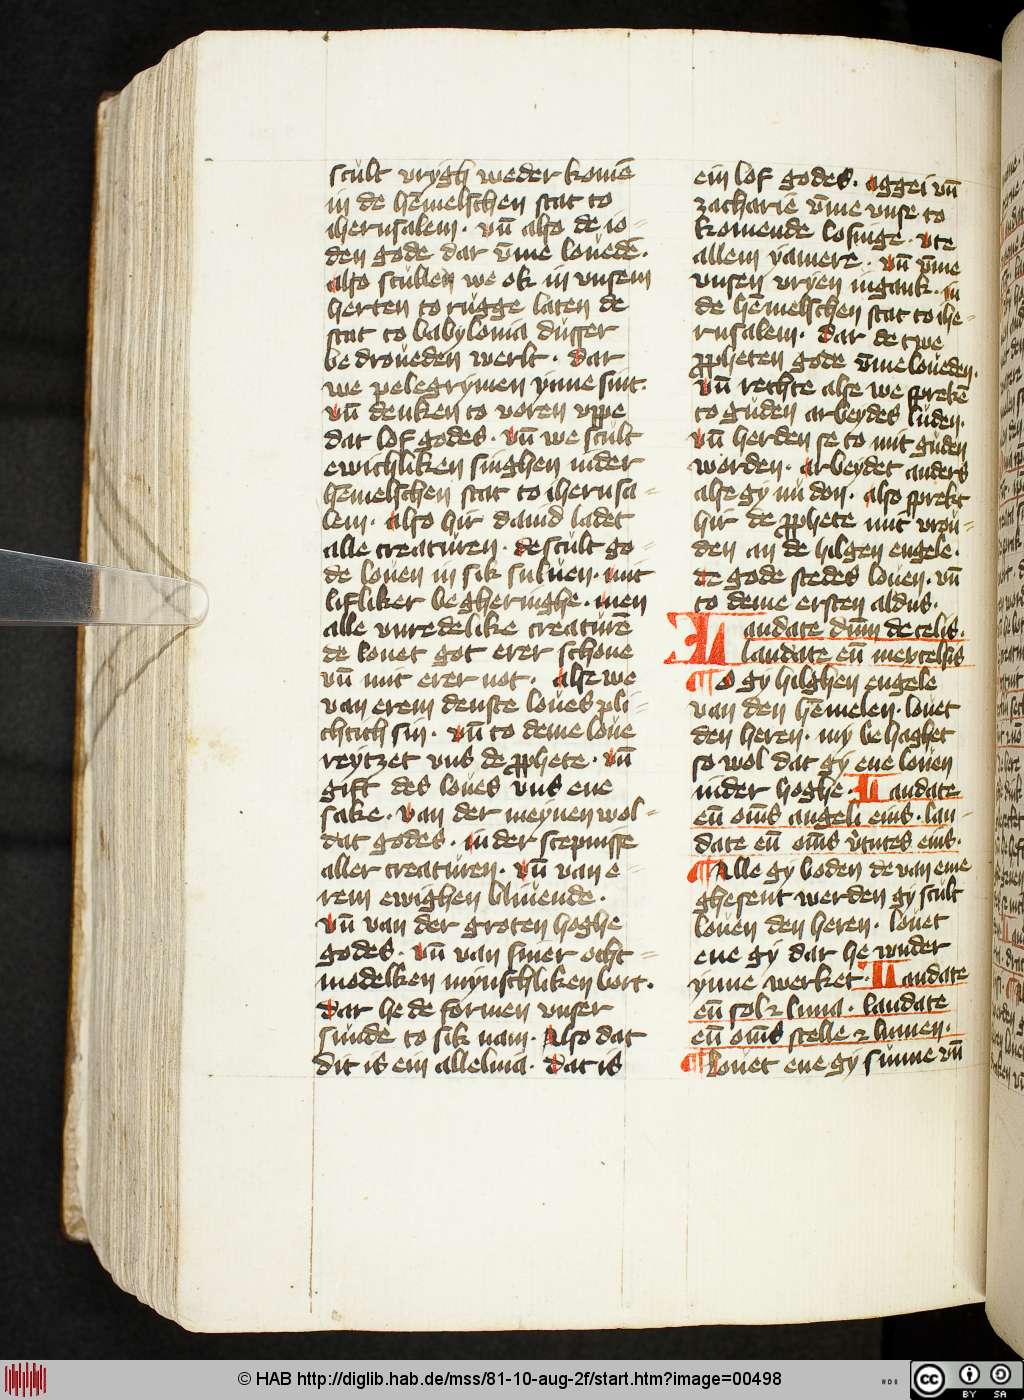 scult vrygh weder komē
in de hēmelschen stat to
iherusalem. vn̄ also de io=
den gode dar v̄me louedē.
also scullen we ok in vnsem
herten to rugge laten de
stat to babylonia dusser
bedroueden werlt. dar
we pelegrymen ynne sint.
vn̄ denken to voren vppe
dat lof godes. vn̄ we scult
ewichliken singhen in der
hēmelschen stat to iherusa=
lem. also hir dauid ladet
alle creaturen. de scult go=
de louen in sik suluen. mit
lifliker begheringhe. men
alle vnredelike creaturē
de louet got erer schone
vn̄ mit erer not. alse we
van erem denste loues pli=
chtich sin. vn̄ to deme loue
reytzet vns de ꝓphete. vn̄
gift des loues vns ene
sake. van der meynen wol=
dat godes. in der scepnisse
aller creaturen. vn̄ van e=
rem ewighen bliuende.
vn̄ van der groten hoghe
godes. vn̄ van siner ocht=
modelken mynschliken bort.
dar he de formen vnser
sunde to sik nam. also dat
dit is ein alleluia. dat is
ein lof godes. aggei vn̄
zacharie v̄me vnse to
komende losinge. vte
allem yamere. vn̄ v̄me
vnsen vryen ingank. in
de hēmelschen stat to ihe=
rusalem. dar de twe
ꝓpheten gode v̄me loueden.
vn̄ rechte alse we sprekē
to guden arbeydes luden.
vn̄ herden se to mit guden
worden. arbeydet anders
alse gy nu don. also sprekt
hir de ꝓphete mit vrou=
den an de hilgen engele.
de gode stedes louen. vn̄
to deme ersten aldus.
Laudate dn̄m de celis.
laudate eū in excelsis
¶O gy hilghen engele
van den hēmelen. louet
den heren. my behaghet
so wol dat gy ene louen
in der hoghe. Laudate
eū om̄s angeli eius. lau=
date eū om̄s v̓tutes eius.
¶Alle gy boden de van eme
ghesent werden gy scult
louen den heren. louet
ene gy dar he wnder
ynne werket. Laudate
eū sol ⁊ luna. laudate
eū om̄s stelle ⁊ lumen.
¶Louet ene gy sunne vn̄
© HAB http://diglib.hab.de/mss/81-10-aug-2f/start.htm?image=00498
cc BY SA